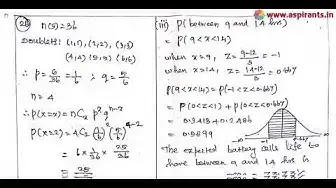 www.aspirants.in
25) n(s) = 36
Doublet: (1,1), (2,2), (3,3)
(4,4) (5,5) (6,6)
∴ P = 6/36 = 1/6 ; q = 5/6
n = 4
P(x=x) = nCx p^x q^n-x
P(x=2) = 4C2 (1/6)^2 (5/6)^2
= 6 × 1/36 × 25/36
= 25
(iii) P(between 9 and 14 hrs)
= P(9<x<14)
when x=9, Z = 9-12/3 = -1
when x=14, Z = 14-12/3 = 0.667
P(9<x<14) = P(-1<z<0.667)
= P(0<z<1) + P(0<z<0.667)
= 0.3413 + 0.2486
= 0.5899
The expected battery cells life to
have between 9 and 14 hrs is